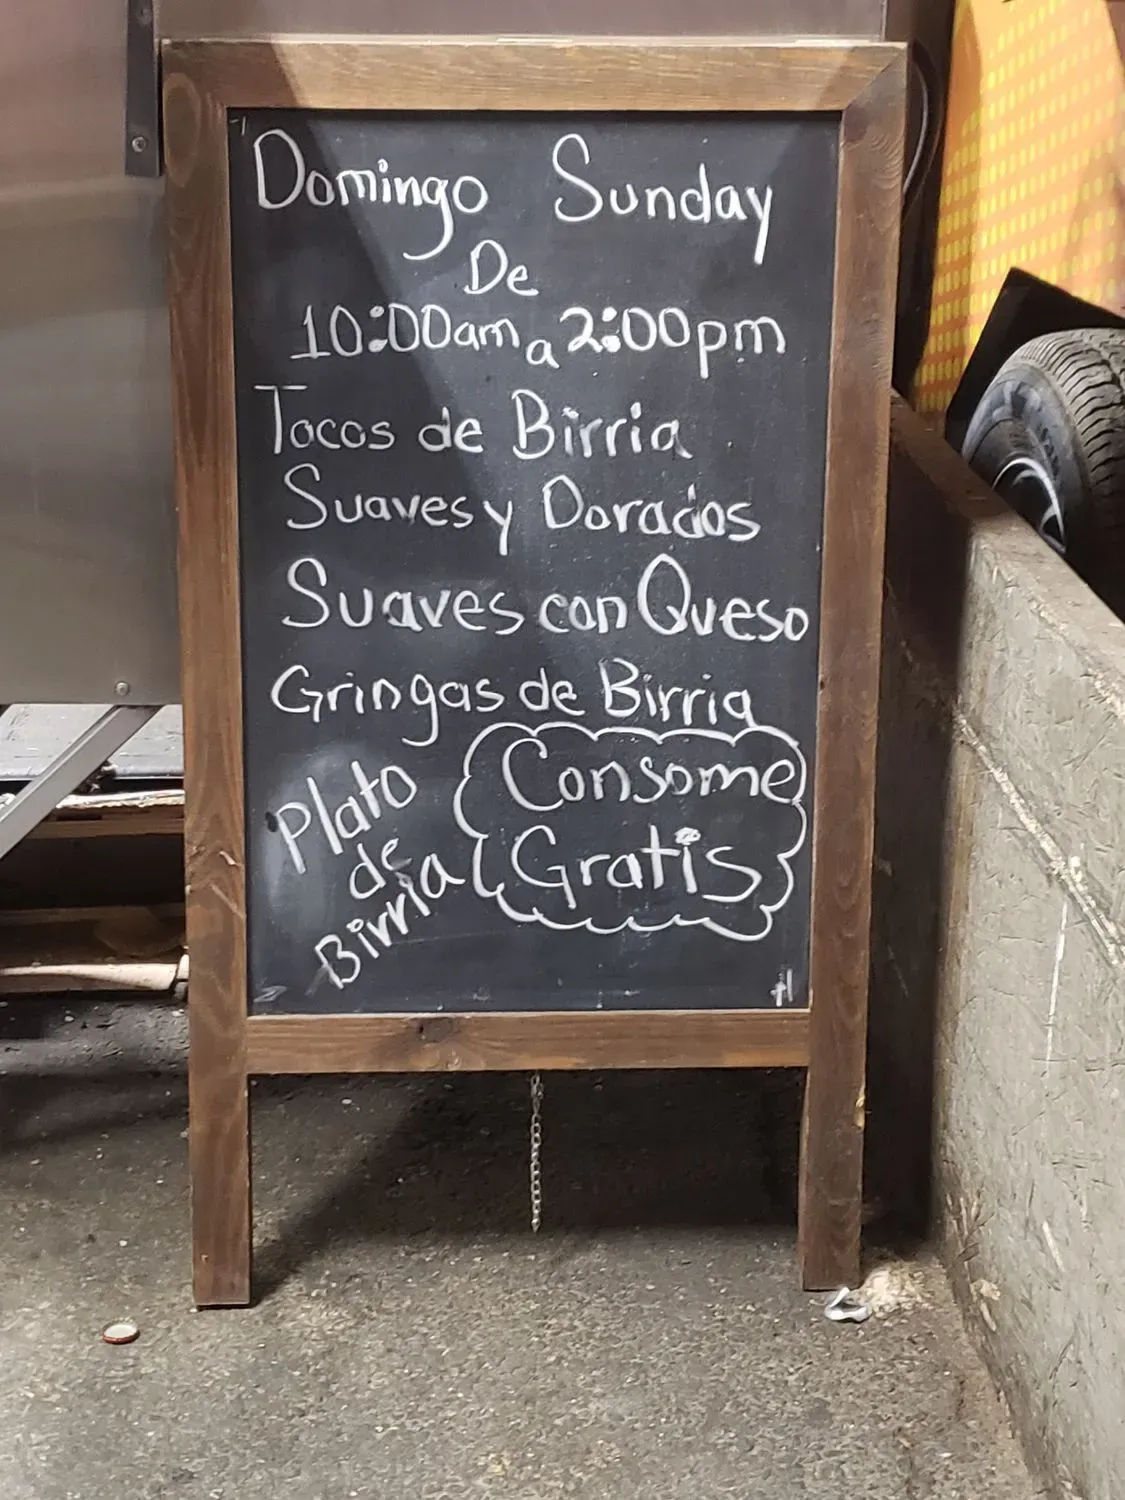 Domingo Sunday
De
10:00am a 2:00pm
Tacos de Birria
Suaves y Dorados
Suaves con Queso
Gringas de Birria
Plato
de
Birria
Consome
Gratis